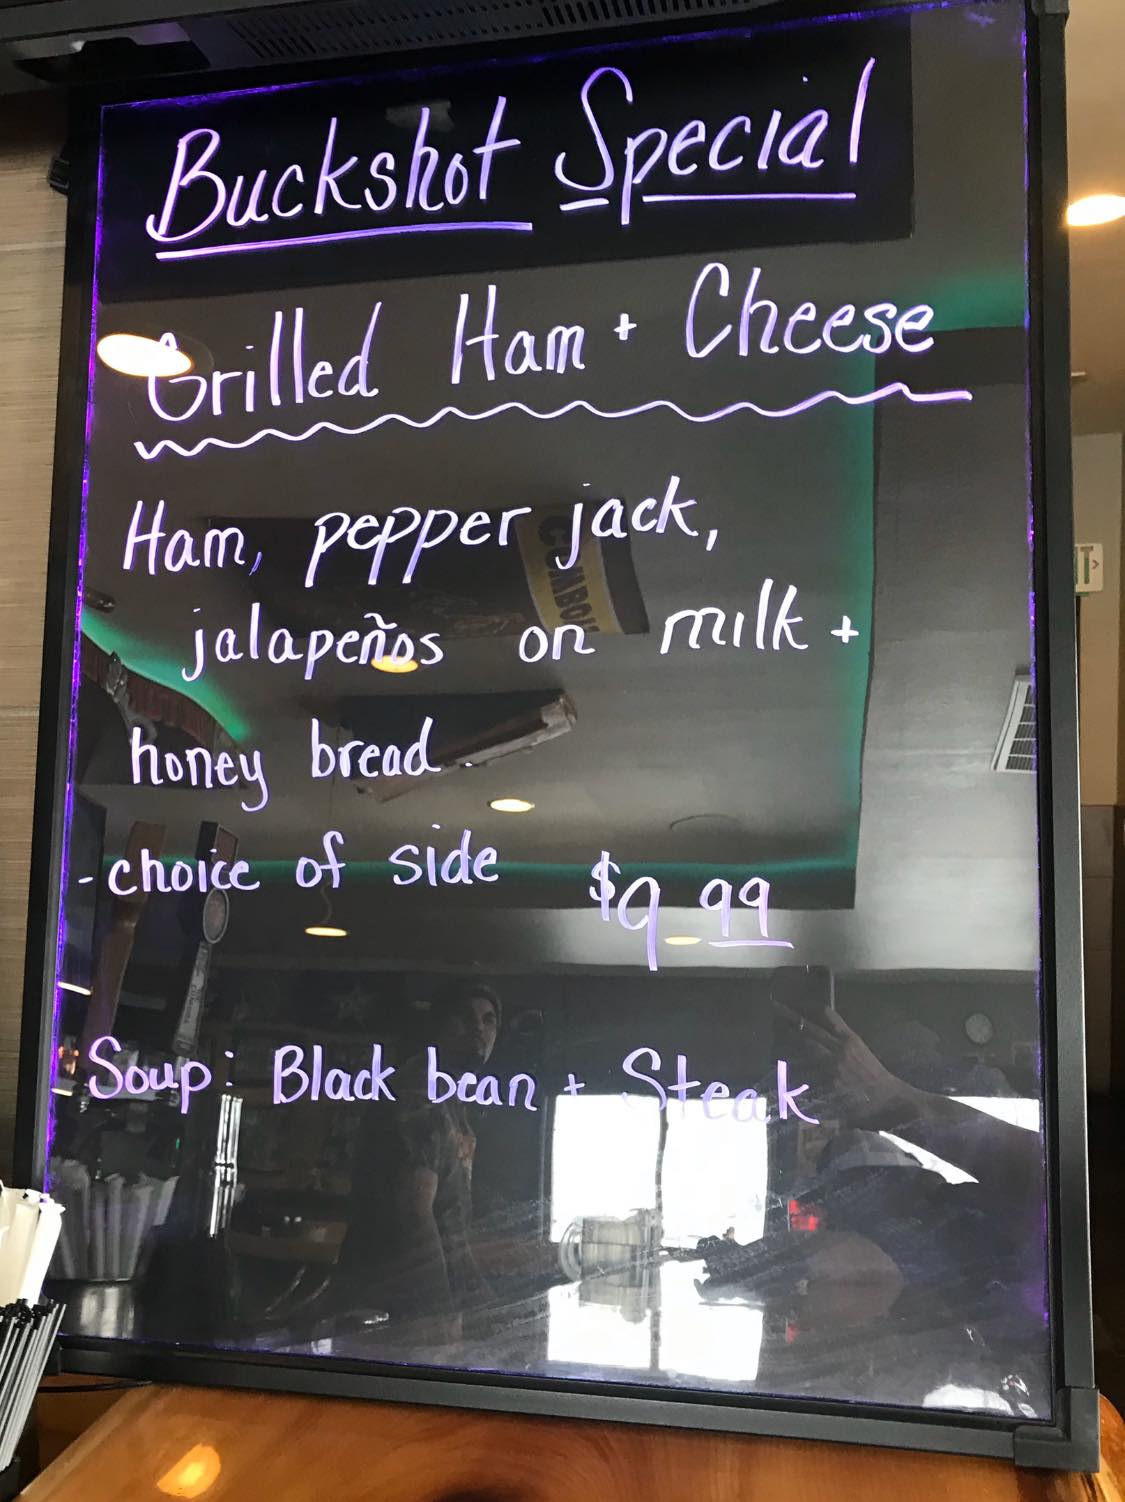 Buckshot Special
Grilled Ham + Cheese
Ham, pepper jack,
jalapeños on milk +
honey bread.
- choice of side
$9 99
Soup: Black bean + Steak